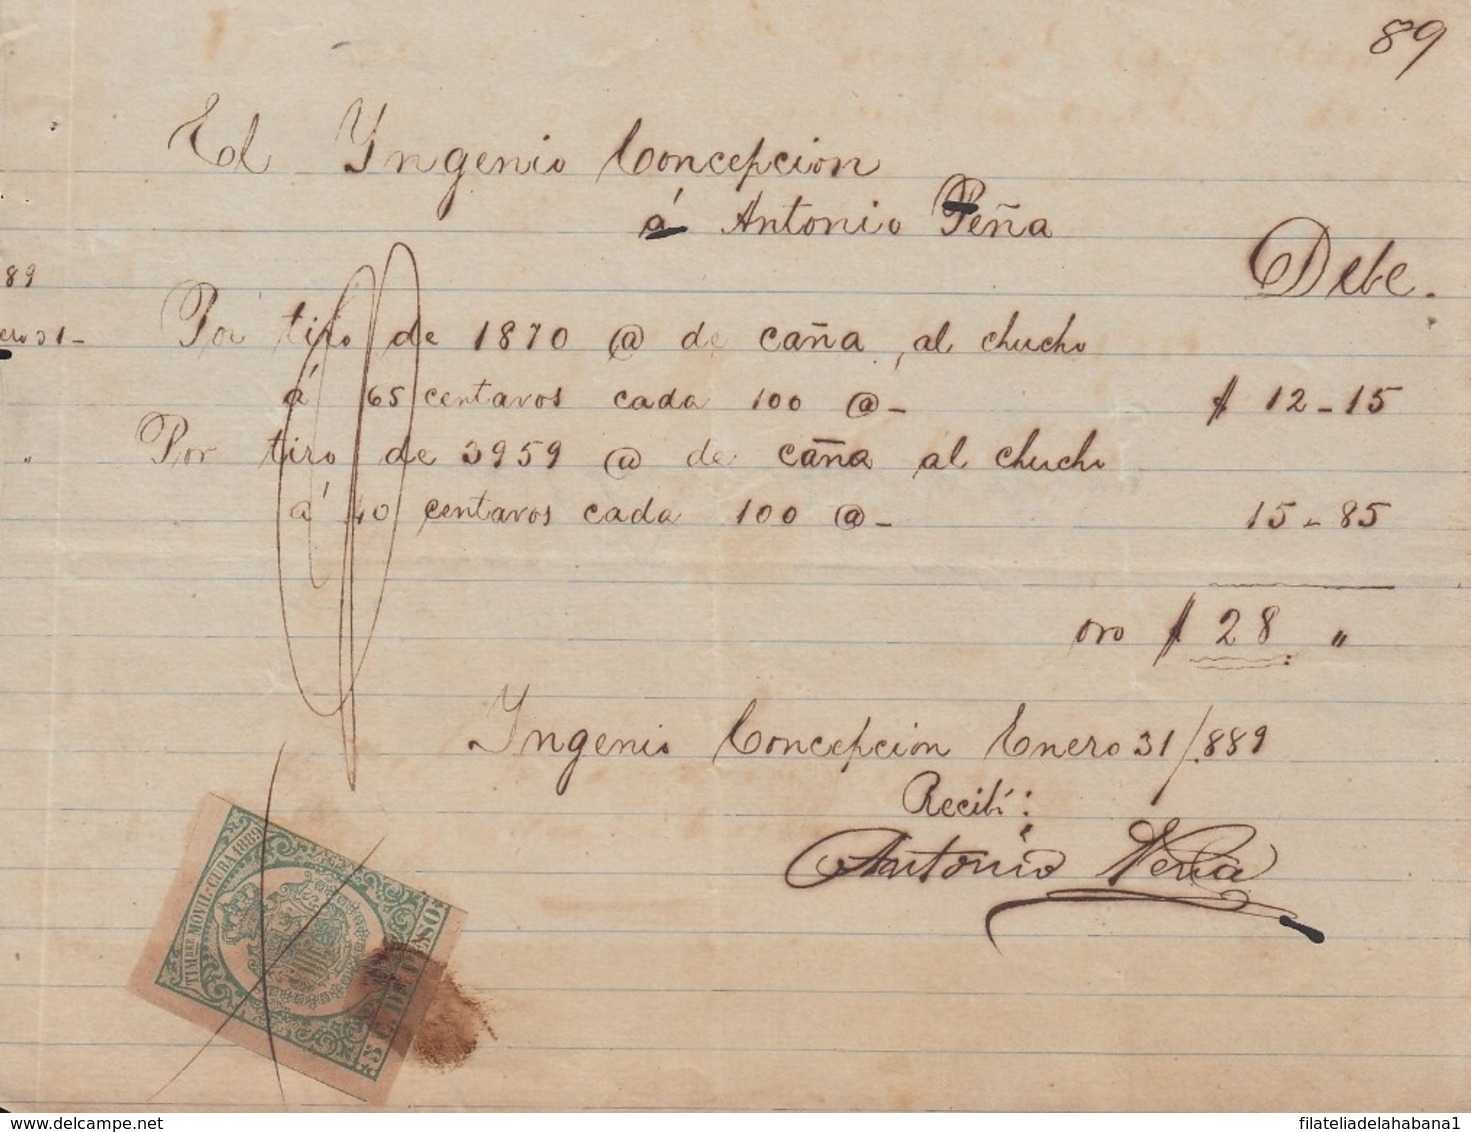 89
El Yngenio Concepcion
á Antonio Peña
Debe.
89
ero 31 - Por tiro de 1870 @ de caña, al chucho
á 65 centavos cada 100 @ - $ 12 - 15
" Por tiro de 3959 @ de caña al chucho
á 40 centavos cada 100 @ - 15 - 85
oro $ 28 "
Yngenio Concepcion Enero 31/.889
Recibí:
Antonio Peña
TIMBRE MOVIL-CUBA 1889
5 C. DE PESO
filateliadelahabana1